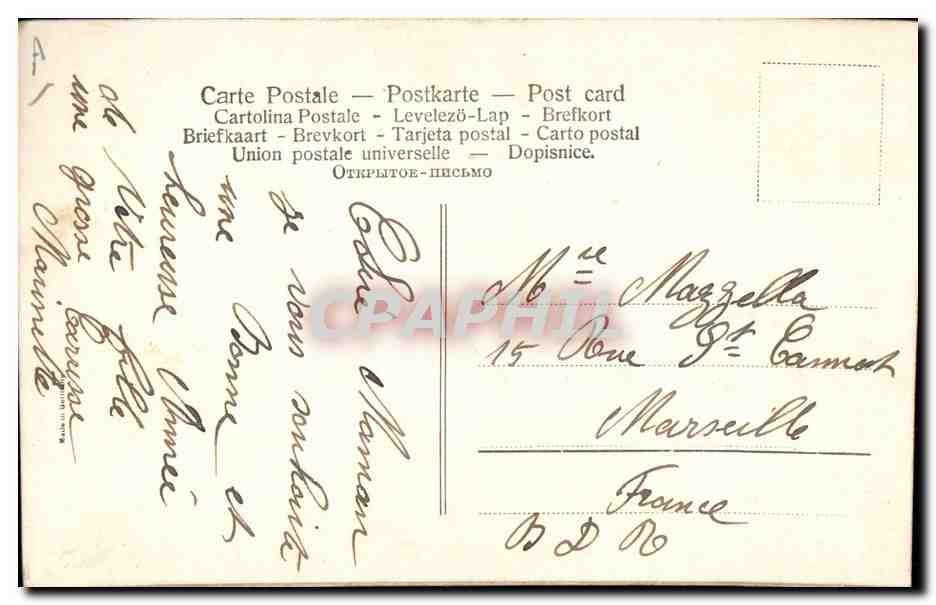 Carte Postale — Postkarte — Post card
Cartolina Postale - Levelezö-Lap - Brefkort
Briefkaart - Brevkort - Tarjeta postal - Carto postal
Union postale universelle — Dopisnice.
Открытое-письмо
Chère Maman
je vous souhait
une Bonne et
heuresse Année
de Votre fille
une grosse caresse
Marinette
Mre Mazzella
15 Rue St Cannat
Marseille
France
B D R
Made in Germany
CPAPHIL